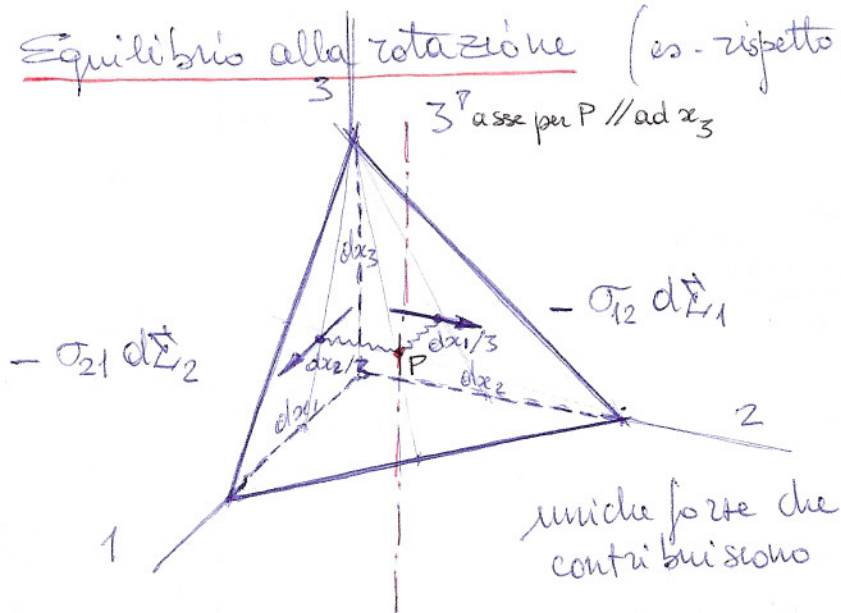 Equilibrio alla rotazione (es. rispetto
3
3 asse per P // ad x₃
dx₃
- σ₁₂ dΣ₁
- σ₂₁ dΣ₂
dx₁/3
dx₂/3
P
dx₂
dx₁
2
1
uniche forze che
contribuiscono